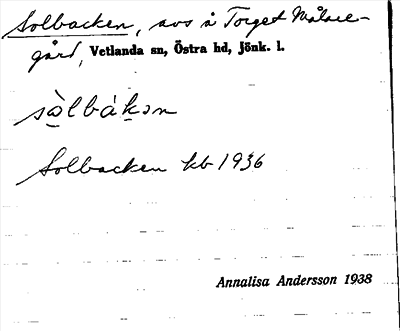 Solbacken, avs å Torget Målare-
gård, Vetlanda sn, Östra hd, Jönk. l.
sòlbákən
Solbacken kb 1936
Annalisa Andersson 1938